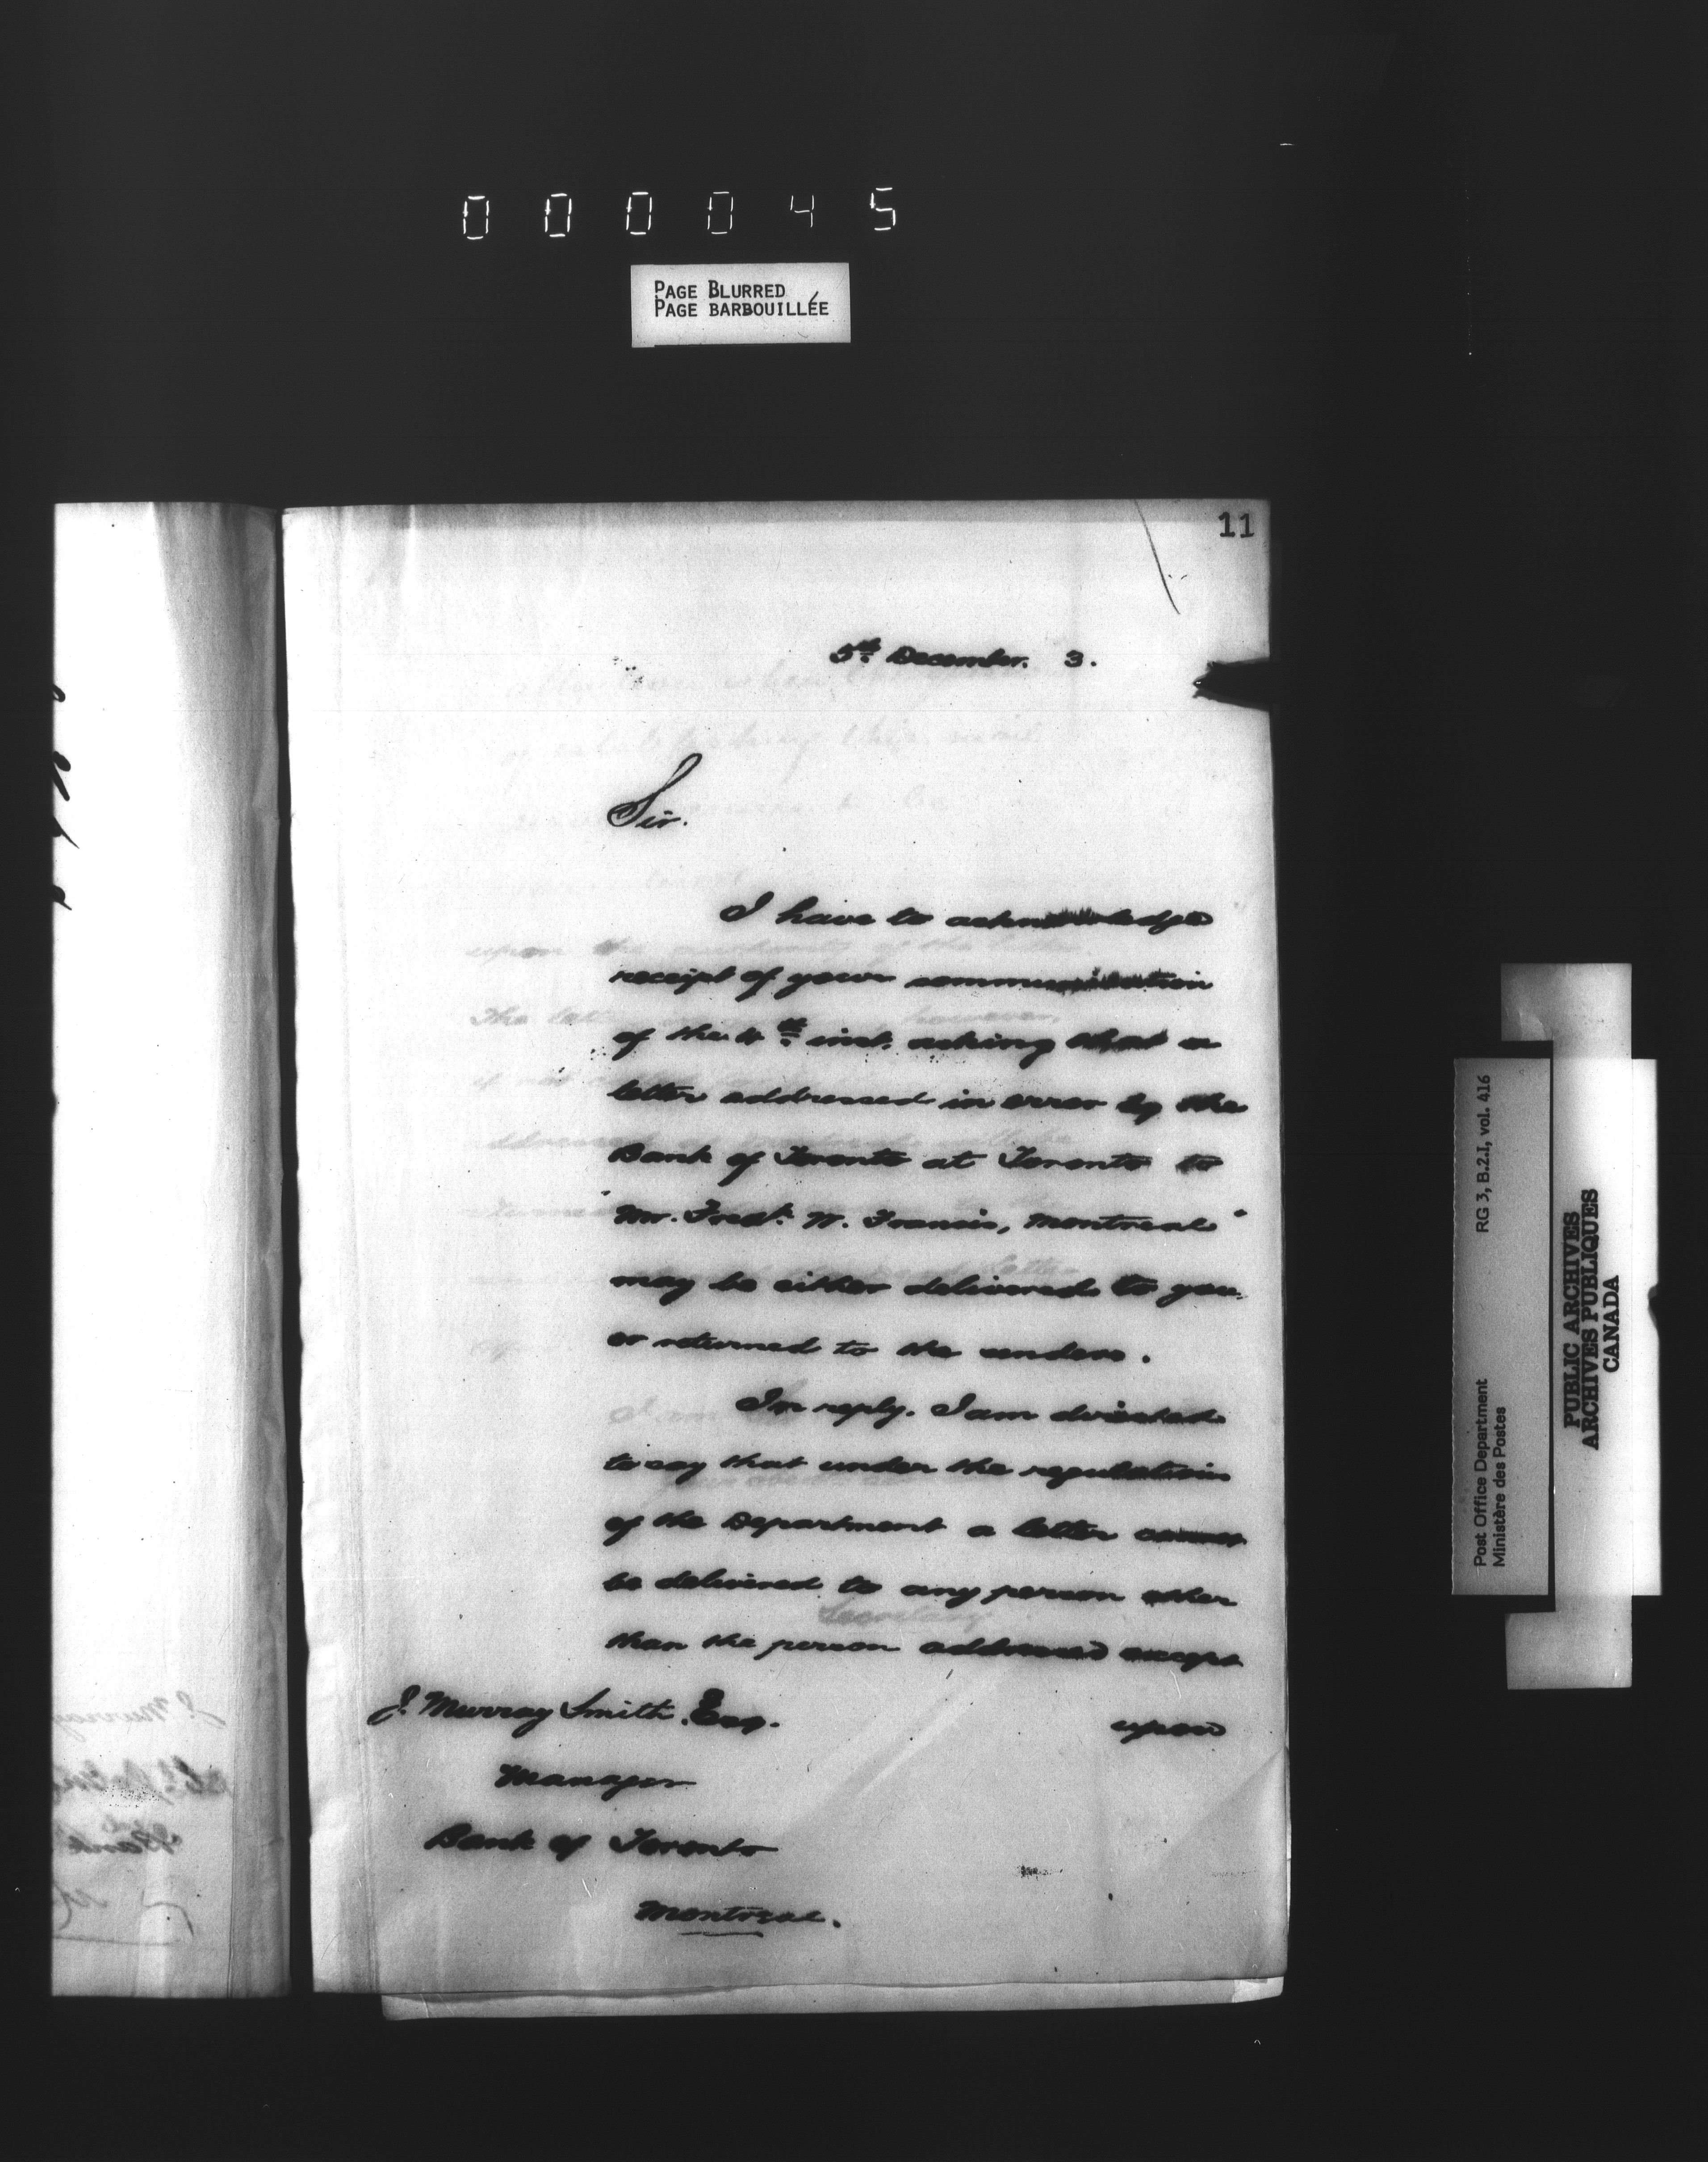 000045
PAGE BLURRED
PAGE BARBOUILLÉE
11
5th December. 3.
Sir.
I have to acknowledge
receipt of your communication
of the 4th inst. asking that a
letter addressed in error by the
Bank of Toronto at Toronto to
"Mr. Fredk. W. Francis, Montreal"
may be either delivered to you
or returned to the senders.
In reply. I am directed
to say that under the regulations
of the Department a letter cannot
be delivered to any person other
than the person addressed except
upon
J. Murray Smith. Esq.
Manager
Bank of Toronto
Montreal.
Post Office Department
Ministère des Postes
RG 3, B.2.I, vol. 416
PUBLIC ARCHIVES
ARCHIVES PUBLIQUES
CANADA